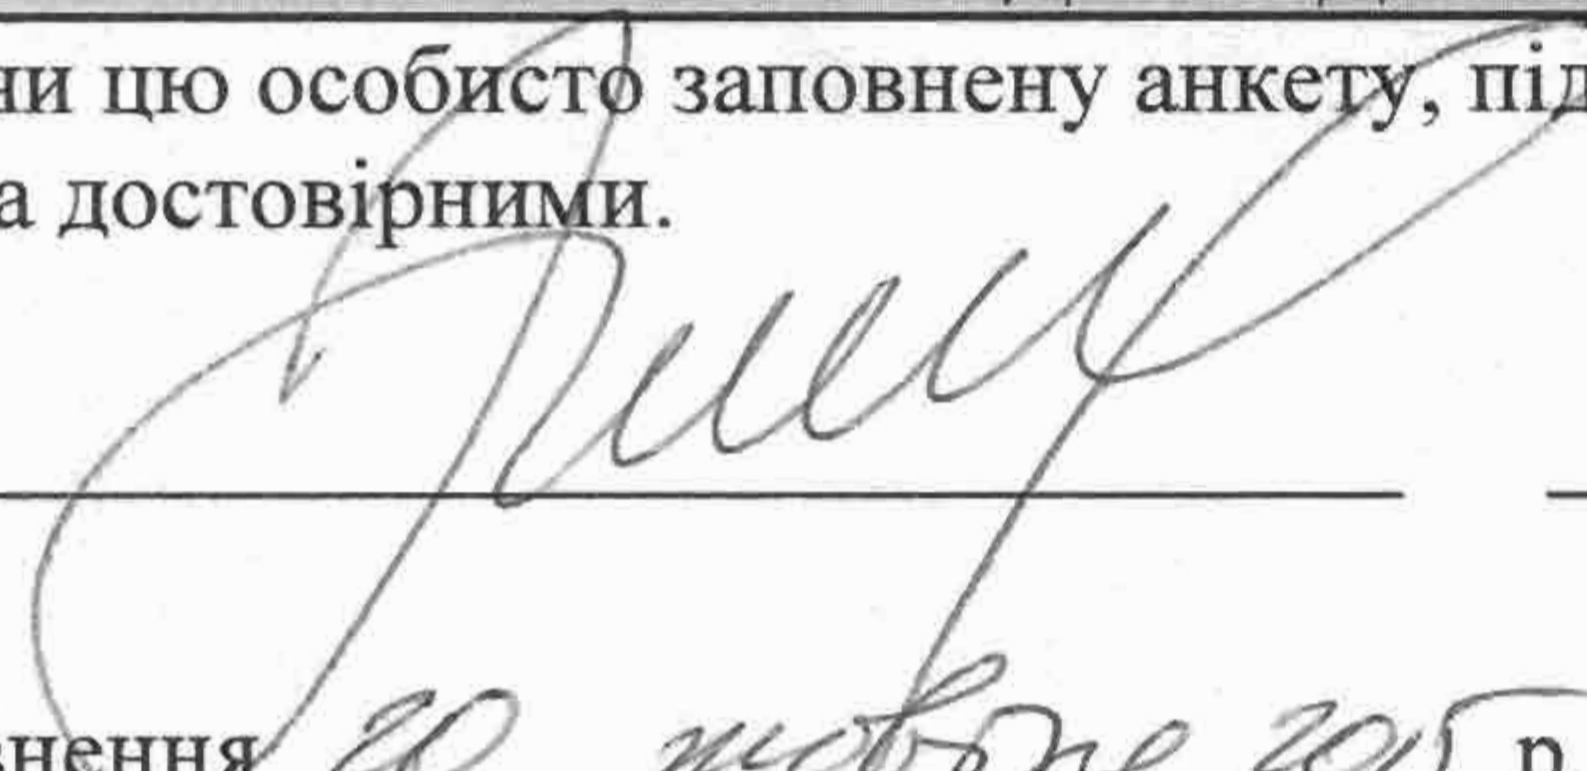 ни цю особисто заповнену анкету, під
а достовірними.
внення 20 жовтне 2015 р